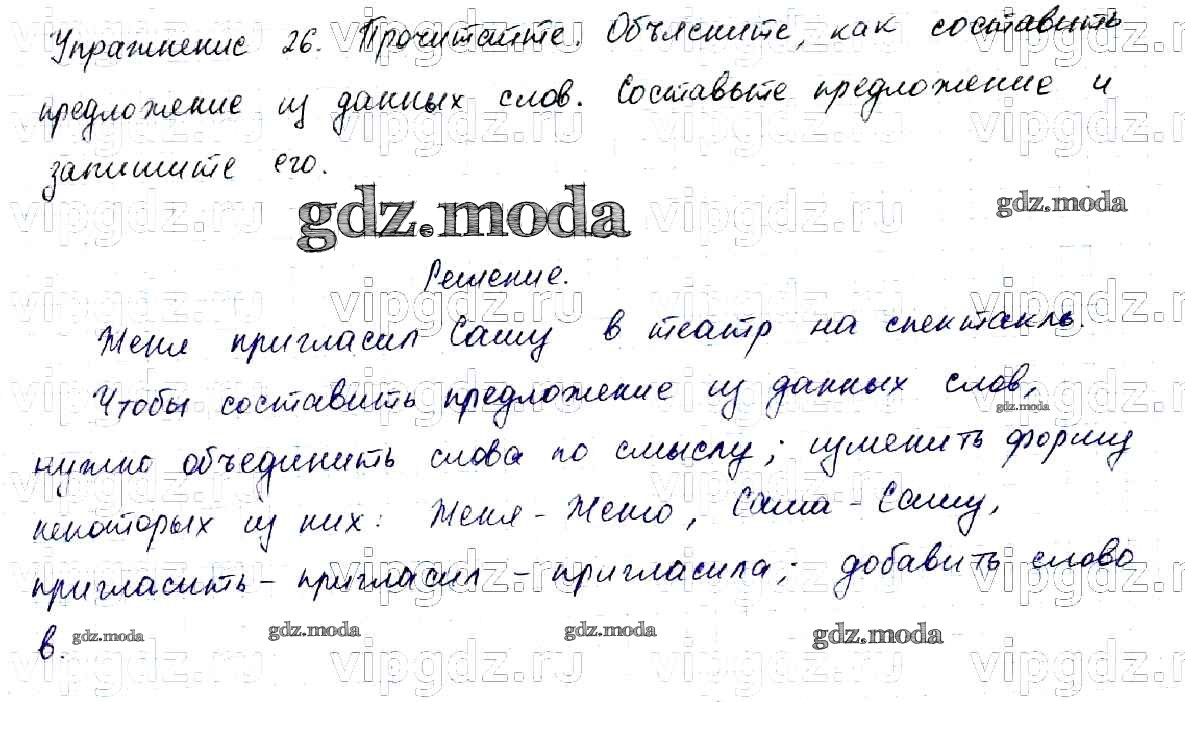 Упражнение 26. Прочитайте. Объясните, как составить
предложение из данных слов. Составьте предложение и
запишите его.
gdz.moda
gdz.moda
Решение.
Женя пригласил Сашу в театр на спектакль.
Чтобы составить предложение из данных слов,
gdz.moda
нужно объединить слова по смыслу; изменить форму
некоторых из них: Женя - Женю, Саша - Сашу,
пригласить - пригласил - пригласила; добавить слово
в.
gdz.moda gdz.moda gdz.moda gdz.moda
vipgdz.ru vipgdz.ru vipgdz.ru vipgdz.r